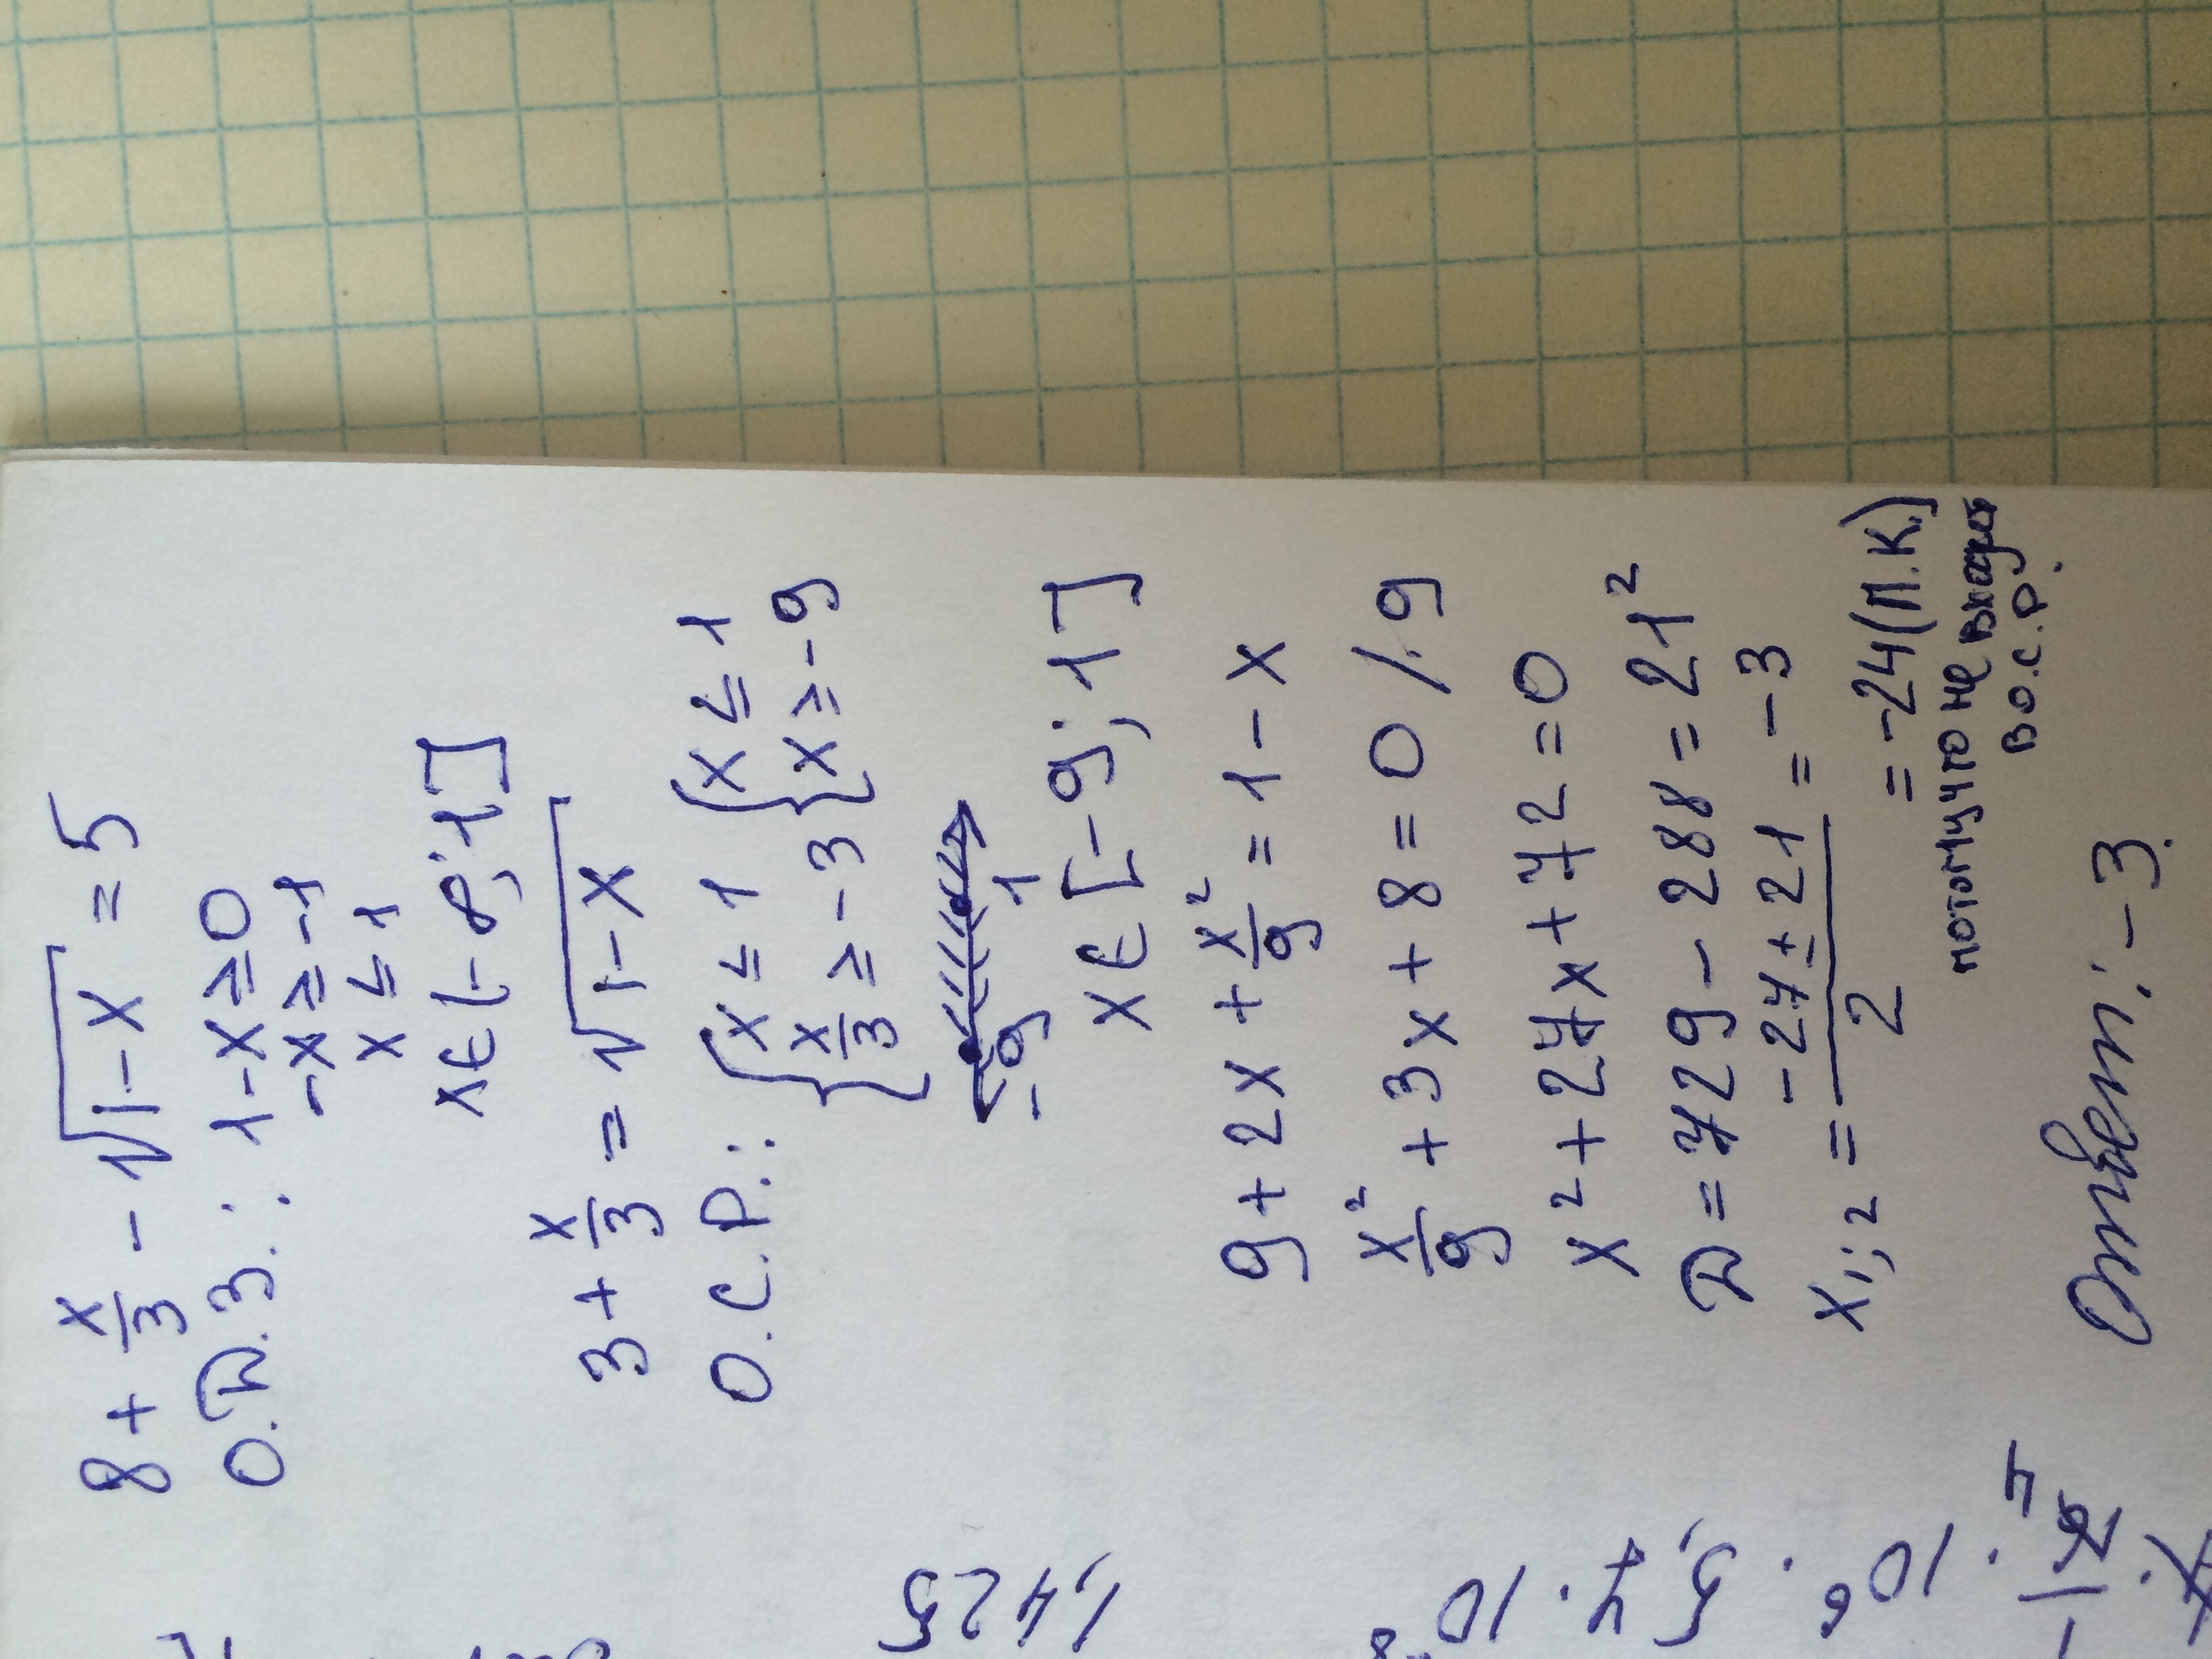 8 + x/3 - √(1-x) = 5
О.Д.З.: 1-x ≥ 0
-x ≥ -1
x ≤ 1
x ∈ (-∞; 1]
3 + x/3 = √(1-x)
О.С.Р.: { x ≤ 1 { x ≤ 1
{ x/3 ≥ -3 { x ≥ -9
-9 1
x ∈ [-9; 1]
9 + 2x + x²/9 = 1 - x
x²/9 + 3x + 8 = 0 /·9
x² + 27x + 72 = 0
Д = 729 - 288 = 21²
x₁;₂ = (-27 ± 21)/2 = -3
= -24 (П.К.)
потому что не входит
в О.С.Р.
Ответ: -3.
1,425